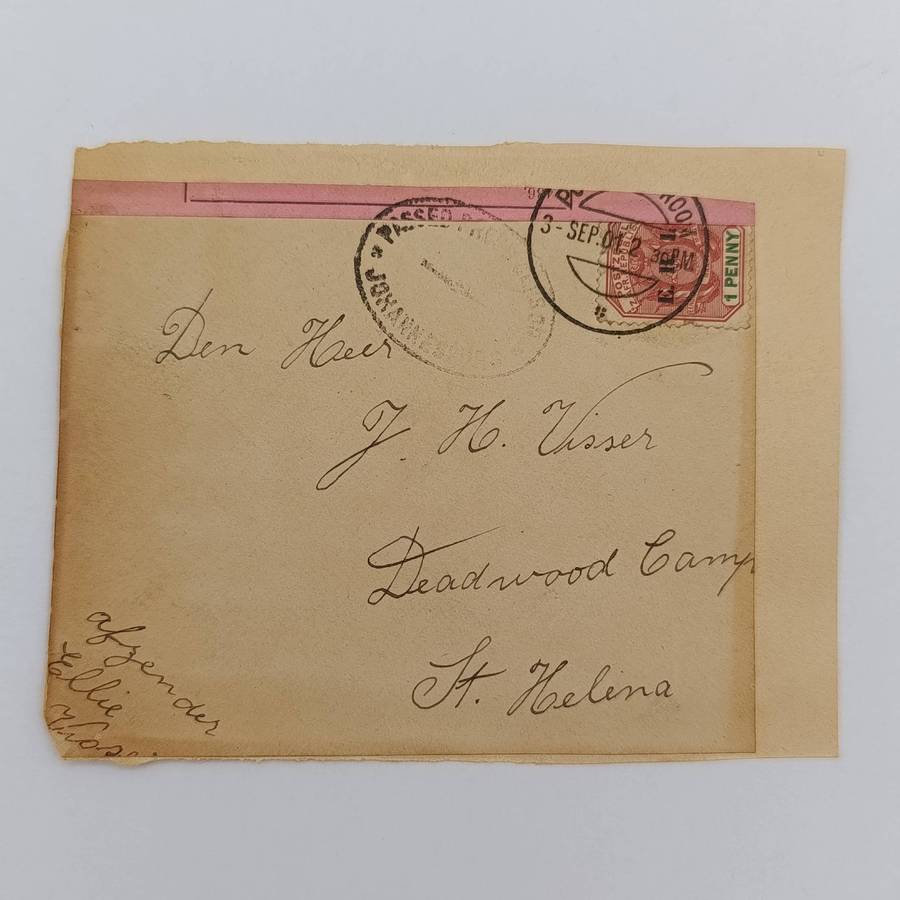 PASSED PRE
JOHANNESBURG
3-SEP.01.2
30PM
POSTZEGEL
E.R.I.
1 PENNY
Den Heer
J. H. Visser
Deadwood Camp
St. Helena
afzender
Ellie